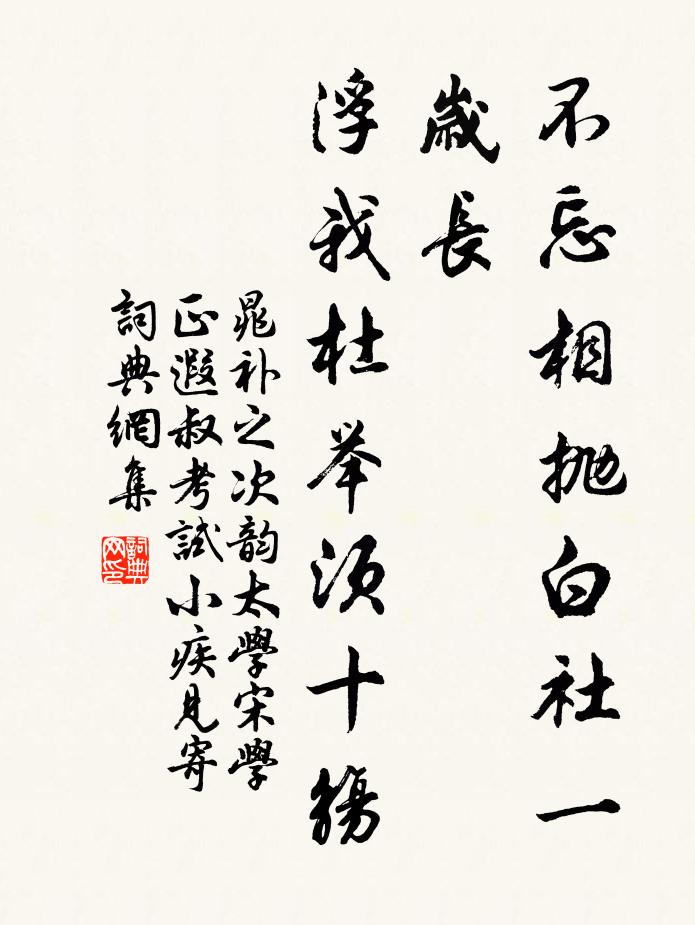 不忘相抛白社一
歲長
浮我杜举須十觴
晁补之次韵太學宋學
正遐叔考試小疾見寄
詞典網集
詞典
网印